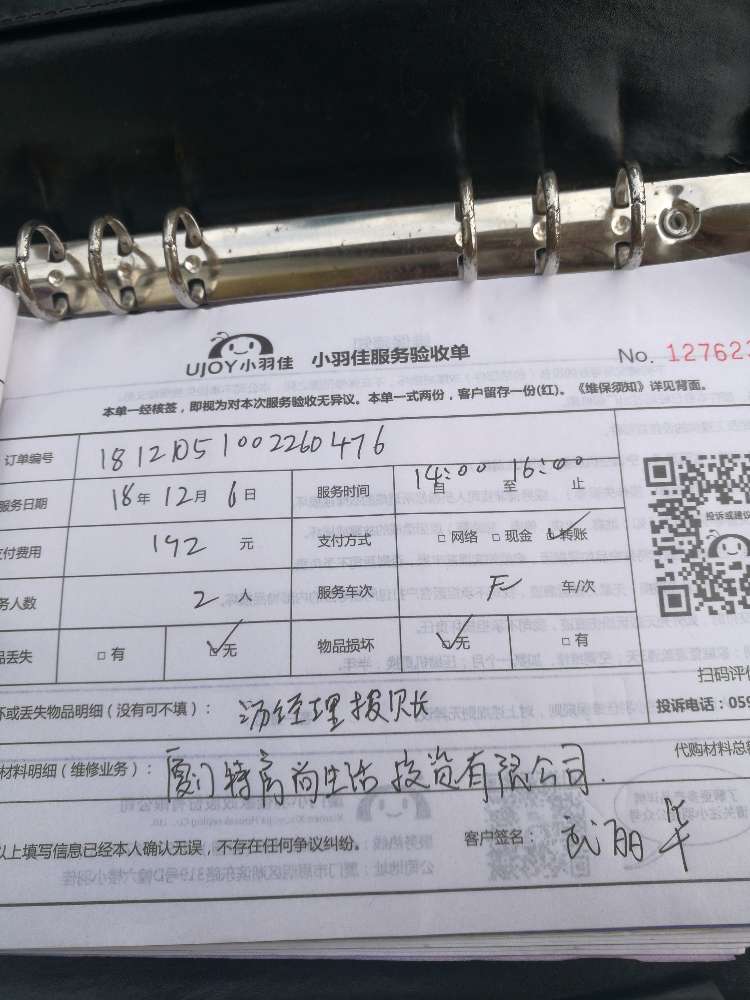 UJOY小羽佳 小羽佳服务验收单 No. 127623
本单一经核签，即视为对本次服务验收无异议。本单一式两份，客户留存一份(红)。《维保须知》详见背面。
订单编号 1812051002260476
服务日期 18年 12月 6日 服务时间 14:00自 至 16:00止
付费用 192 元 支付方式 □ 网络 □ 现金 ☑ 转账
务人数 2 人 服务车次 车/次
品丢失 □ 有 ☑ 无 物品损坏 ☑ 无 □ 有
投诉或建议
扫码评价
坏或丢失物品明细（没有可不填）： 汤经理报
投诉电话：059
材料明细（维修业务）： 厦门特高尚生活投资有限公司.
代购材料总
以上填写信息已经本人确认无误，不存在任何争议纠纷。 客户签名：